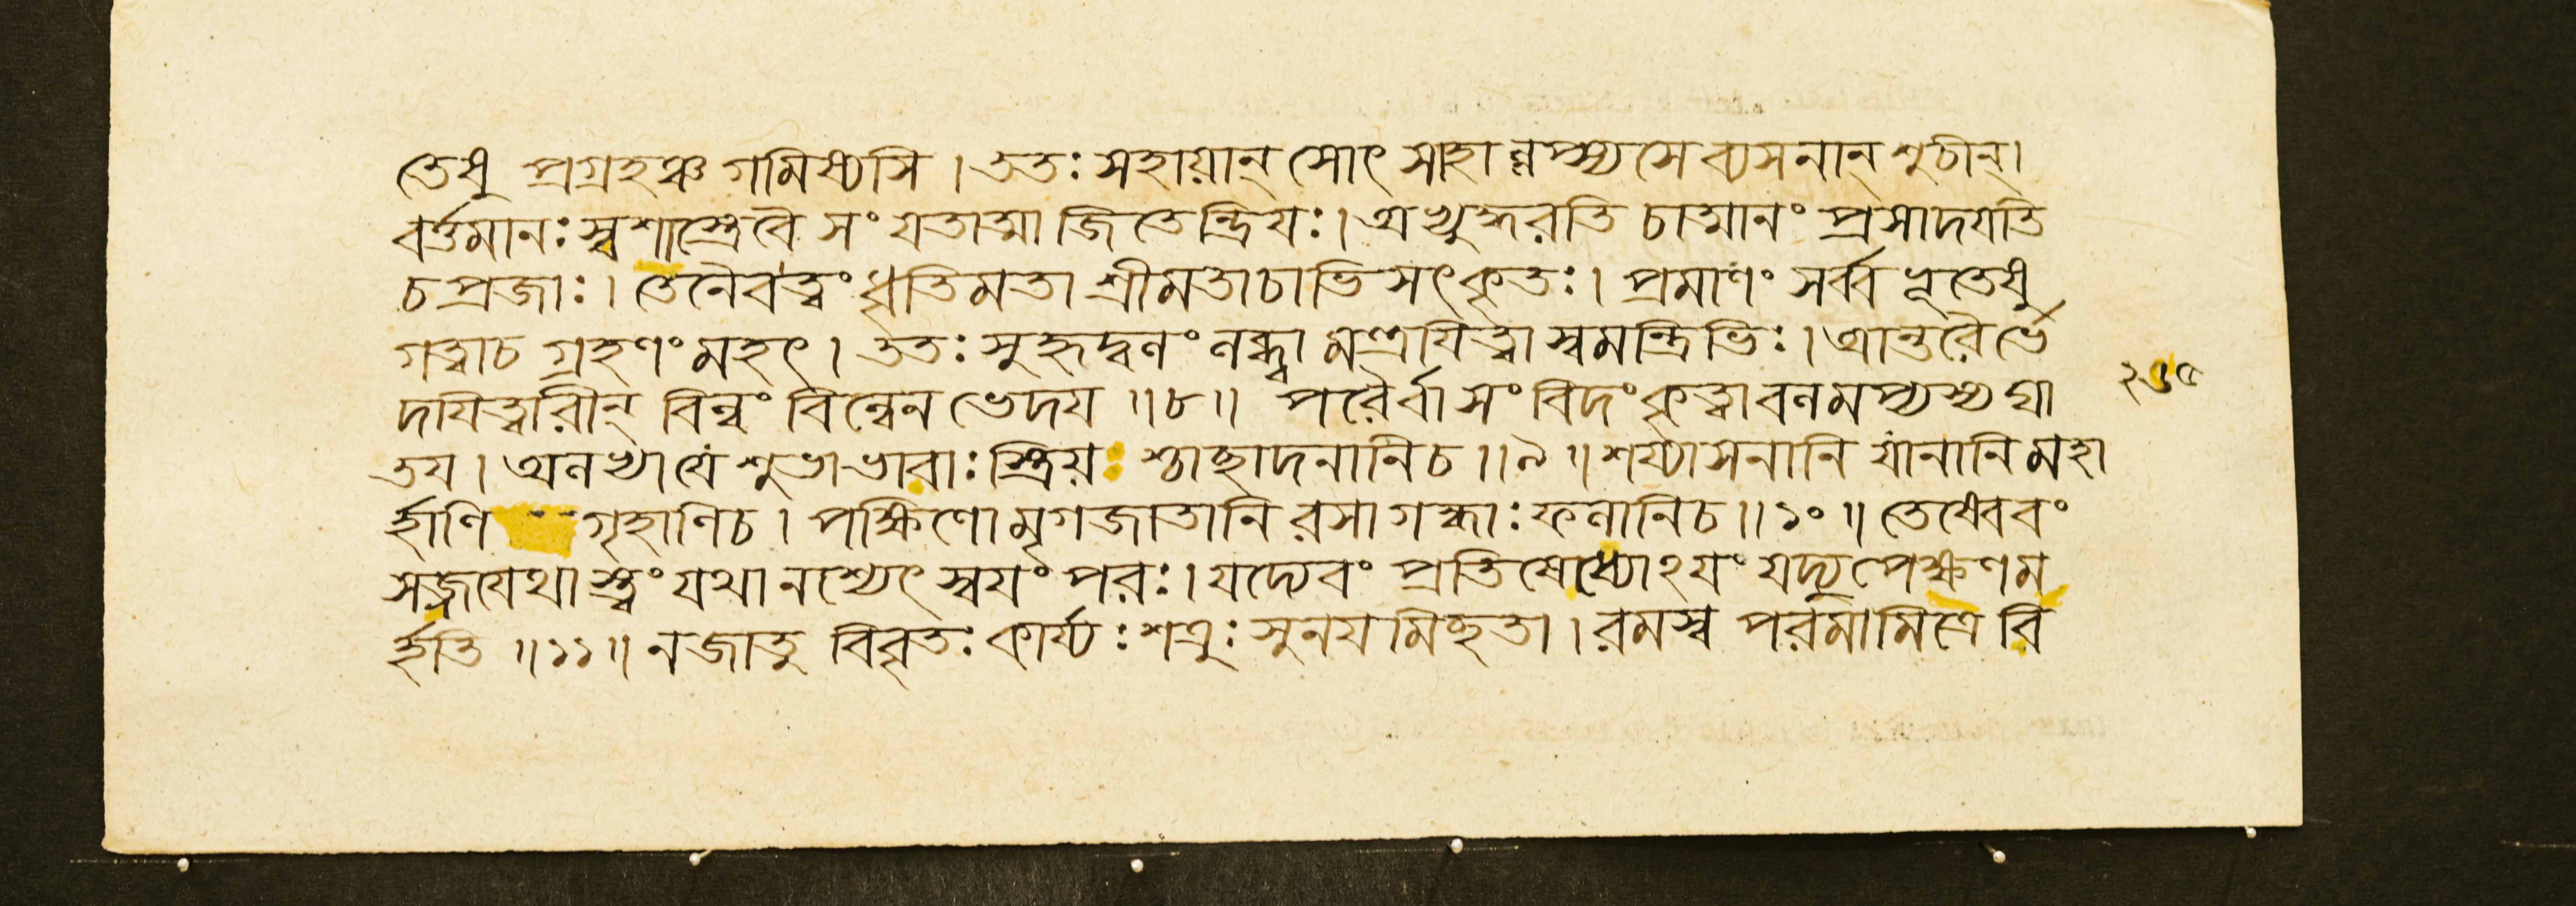 তেষু প্রগ্রহঞ্চ গমিষ্যসি । ততঃ সহায়ান্ সোৎ সাহা ল্লপ্স্যসে ব্যসনান্ শুচীন্।
বর্ত্তমানঃ স্বশাস্ত্রেবৈ সংযতাত্মা জিতেন্দ্রিয়ঃ। অভ্যুদ্ধরতি চাত্মানং প্রসাদয়তি
চ প্রজাঃ। তেনৈবত্বং ধৃতিমতা শ্রীমতাচাভিসৎকৃতঃ। প্রমাণং সর্ব্বভূতেষু
গত্বাচ গ্রহণং মহৎ । ততঃ সুহৃদ্বলং লব্ধ্বা মন্ত্রয়িত্বা স্বমন্ত্রিভিঃ। আন্তরৈর্ভে
দয়িত্বারীন্ বিল্বং বিল্বেন ভেদয় ॥৮॥ পরৈর্বা সংবিদং কৃত্বা বলমপ্যস্য ঘা
২৩৫
তয় । অলভ্যা যে শুভাভাবাঃ স্ত্রিয় শ্চাচ্ছাদনানিচ ॥৯॥ শয্যাসনানি যানানি মহা
র্হাণি গৃহাণিচ । পক্ষিণো মৃগজাতানি রসা গন্ধাঃ ফলানিচ ॥১০॥ তেষ্বেবং
সজ্জয়েথা স্ত্বং যথা নশ্যেৎ স্বয়ং পরঃ। যদ্যেবং প্রতিষেধ্যোঽয়ং যদ্যুপেক্ষণম
র্হতি ॥১১॥ ন জাতু বিবৃতঃ কার্য্যঃ শত্রুঃ সুনয়মিচ্ছতা । রমস্ব পরমামিত্রে বি